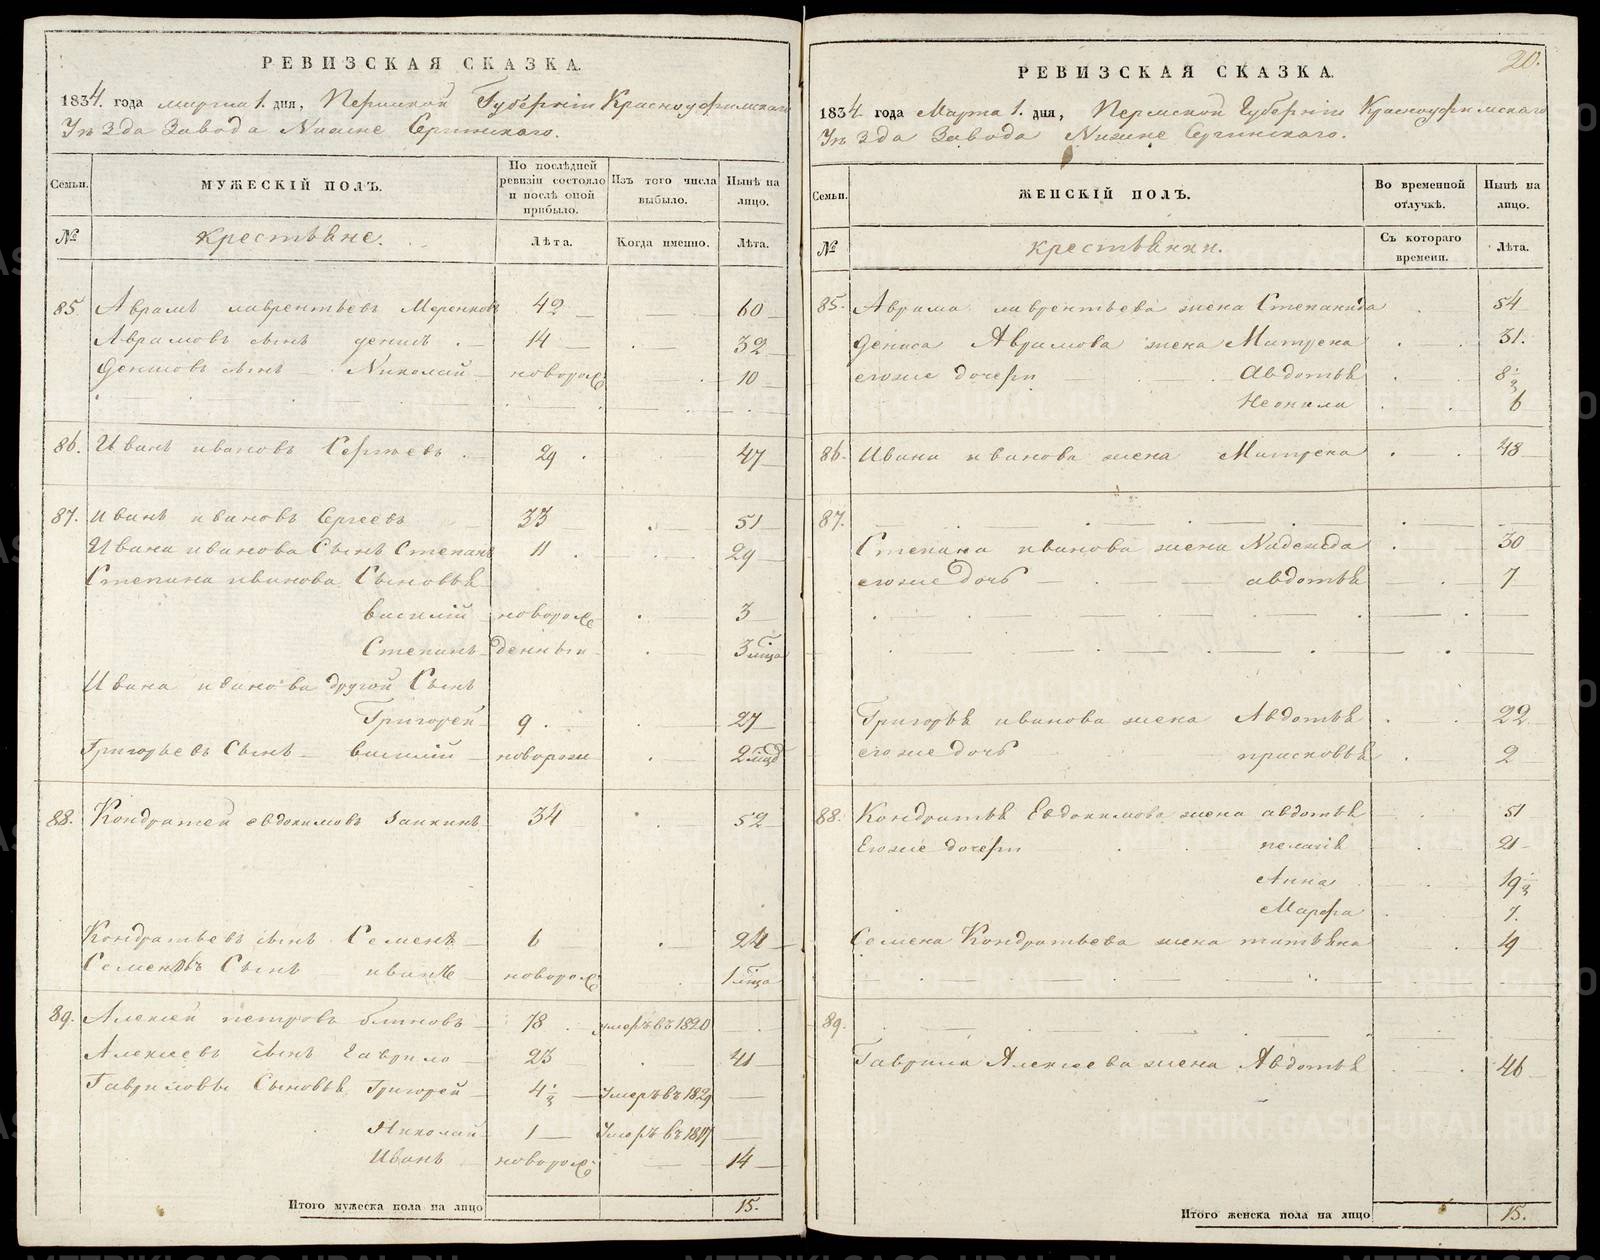 РЕВИЗСКАЯ СКАЗКА.
1834. года марта 1. дня, Пермской Губерніи Красноуфимскаго
Уѣзда Завода Нижне Сергинскаго.
Семьи. МУЖЕСКІЙ ПОЛЪ. По послѣдней ревизіи состояло и послѣ оной прибыло. Изъ того числа выбыло. Нынѣ на лицо.
№ крестьяне. Лѣта. Когда именно. Лѣта.
85 Аврамъ лаврентьевъ 42 60
Аврамовъ сынъ денисъ 14 32
денисовъ сынъ Николай новорож 10
86. Иванъ ивановъ Сергѣевъ 29 47
87. иванъ ивановъ Сергѣевъ 33 51
Ивана иванова Сынъ Степанъ 11 29
Степана иванова Сыновья
василій новорож 3
Степанъ денныи 3 мѣсца
Ивана иванова другой Сынъ
Григорей 9 27
Григорьевъ Сынъ василій новорож 2
88. Кондратей евдокимовъ 34 52
Кондратьевъ сынъ Семенъ 6 24
Семеновъ Сынъ иванъ новорож 1 мѣсца
89. Алексей петровъ блиновъ 78 умеръ въ 1820
Алексеевъ сынъ Гаврило 23 41
Гавриловы Сыновья Григорей 4½ Умеръ въ 1829
Николай 1 Умеръ въ
Иванъ новорож 14
Итого мужеска пола на лицо 15.
20.
РЕВИЗСКАЯ СКАЗКА.
1834. года Марта 1. дня, Пермской Губерніи Красноуфимскаго
Уѣзда Завода Нижне Сергинскаго.
Семьи. ЖЕНСКІЙ ПОЛЪ. Во временной отлучкѣ. Нынѣ на лицо.
№ крестьянки. Съ котораго времени. Лѣта.
85. Аврама лаврентьева жена Степанида 54
дениса Аврамова жена Матрена 31.
егоже дочери Авдотья 8½
Неонила 6
86. Ивана иванова жена Матрена 48
87.
Степана иванова жена Надежда 30
егоже дочь авдотья 7
Григорья иванова жена Авдотья 22
егоже дочь прасковья 2
88. Кондратья Евдокимова жена авдотья 51
Егоже дочери пелагія 21
Анна 19½
Марфа 7.
Семена Кондратьева жена татьяна 19
89.
Гаврила Алексеева жена Авдотья 46
Итого женска пола на лицо 15.
METRIKI.GASO-URAL.RU